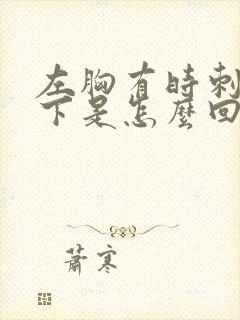 左胸有時刺
下是怎麼回
蕭寒